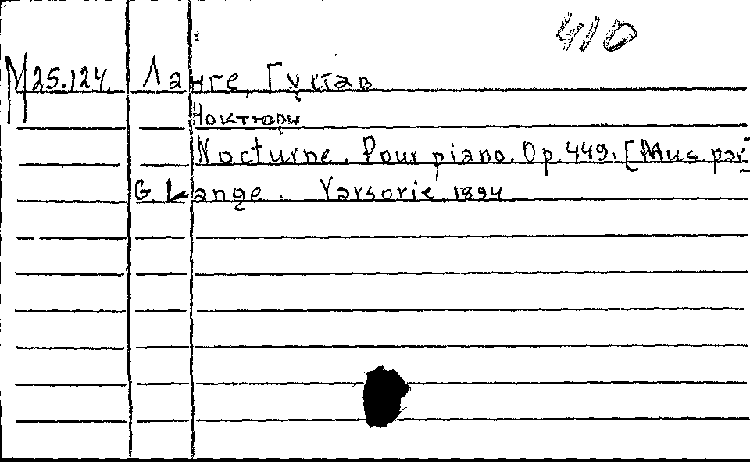 410
М25.124 Ланге, Густав
Ноктюрн
Nocturne. Pour piano. Op. 449. [Mus. par]
G. Lange. Varsovie 1894